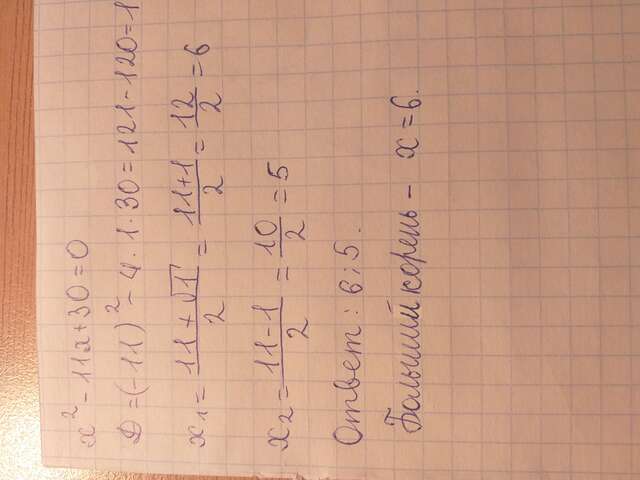 x² - 11x + 30 = 0
Д = (-11)² - 4 · 1 · 30 = 121 - 120 = 1
x₁ = (11 + √1)/2 = (11+1)/2 = 12/2 = 6
x₂ = (11 - 1)/2 = 10/2 = 5
Ответ: 6; 5.
Больший корень - x = 6.